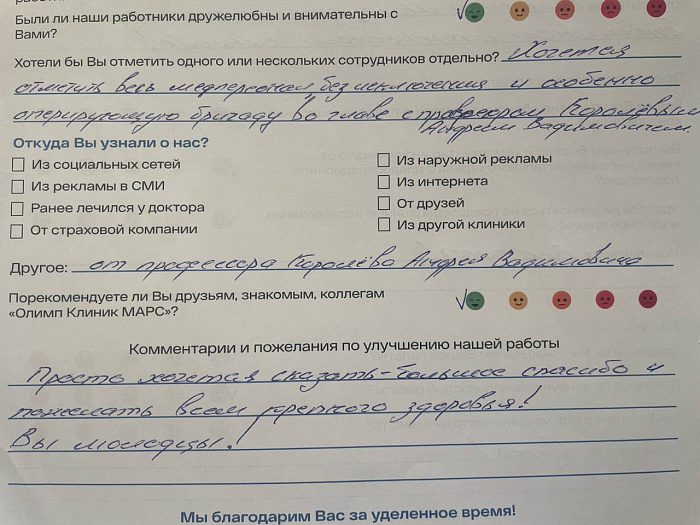 Были ли наши работники дружелюбны и внимательны с
Вами?
Хотели бы Вы отметить одного или нескольких сотрудников отдельно? Хочется
отметить весь медперсонал, без исключения и особенно
оперирующую бригаду во главе с профессором Королёвым
Андреем Вадимовичем.
Откуда Вы узнали о нас?
Из социальных сетей
Из рекламы в СМИ
Ранее лечился у доктора
От страховой компании
Из наружной рекламы
Из интернета
От друзей
Из другой клиники
Другое: от профессора Королёва Андрея Вадимовича
Порекомендуете ли Вы друзьям, знакомым, коллегам
«Олимп Клиник МАРС»?
Комментарии и пожелания по улучшению нашей работы
Просто хочется сказать - большое спасибо и
пожелать всем крепкого здоровья!
Вы молодцы!
Мы благодарим Вас за уделенное время!